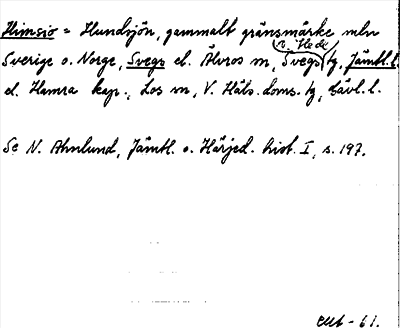 Himsio = Hundsjön, gammalt gränsmärke mln
Sverige o. Norge, Svegs el. Älvros sn, Svegs (n. Hede) tg, Jämtl. l.
el. Hamra kap., Los sn, V. Häls. doms. tg, Gävl. l.
Se N. Ahnlund, Jämtl. o. Härjed. hist. I, s. 197.